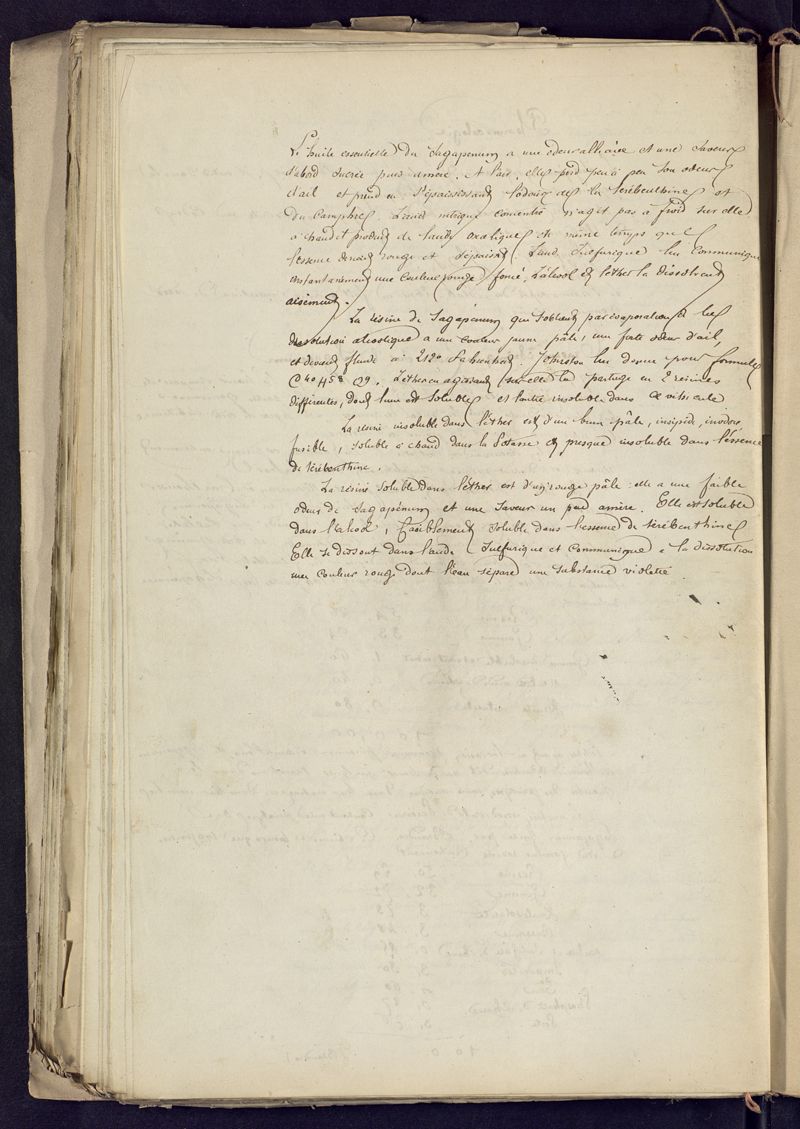 L'huile essentielle du Sagapenum a une odeur alliacée et une saveur
d'abord sucrée puis amère. A l'air, elle perd peu à peu son odeur
d'ail et prend en s'épaississant l'odeur de la térébenthine et
du Camphre. L'acide nitrique concentré n'agit pas à froid sur elle
à chaud il produit de l'acide oxalique en même temps que
l'essence devient rouge et s'épaissit. L'acide sulfurique lui communique
instantanément une couleur rouge foncé. L'alcool et l'éther la dissolvent
aisément.
La résine de Sagapénum qui s'obtient par évaporation de la
dissolution alcoolique a une couleur jaune pâle, une forte odeur d'ail,
et devient fluide à 212° Fahrenheit. Johnston lui donne pour formule
C40 H58 O9. L'éther en agissant sur elle la partage en 2 résines
différentes, dont l'une est soluble et l'autre insoluble dans ce véhicule
La résine insoluble dans l'éther est d'un brun pâle, insipide, inodore
fusible, soluble à chaud dans la Potasse et presque insoluble dans l'essence
de térébenthine.
La résine soluble dans l'éther est d'un rouge pâle: elle a une faible
odeur de Sagapénum et une saveur un peu amère. Elle est soluble
dans l'alcool, faiblement soluble dans l'essence de térébenthine
Elle se dissout dans l'acide sulfurique et communique à la dissolution
une couleur rouge dont l'eau sépare une substance violette